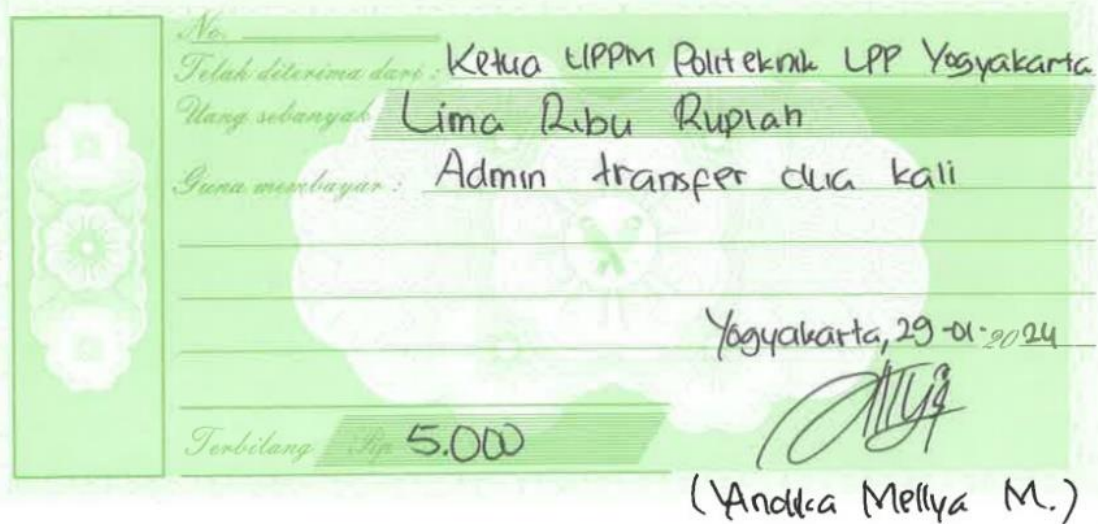 No.
Telah diterima dari : Ketua UPPM Politeknik LPP Yogyakarta
Uang sebanyak Lima Ribu Rupiah
Guna membayar : Admin transfer dua kali
Yogyakarta, 29-01-2024
Terbilang Rp 5.000
(Andika Mellya M.)